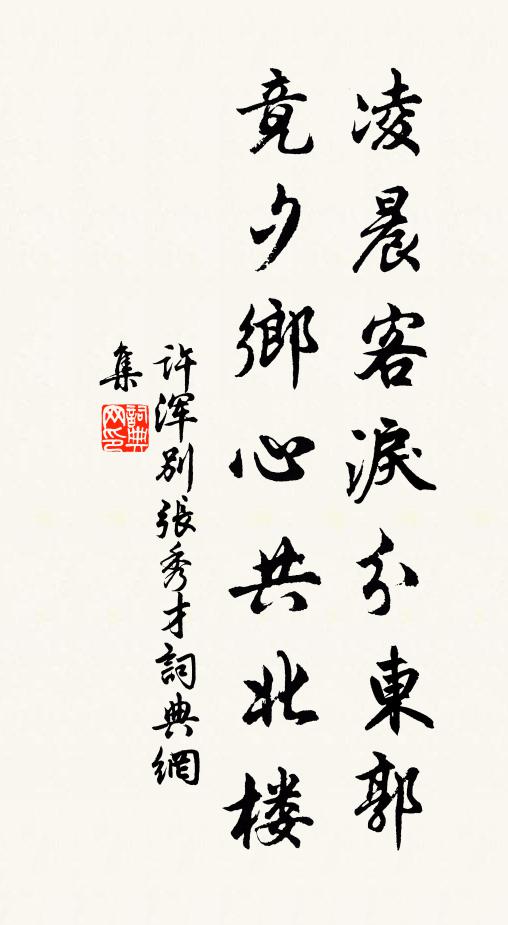 凌晨客淚分東郭
竟夕鄉心共北楼
许渾別張秀才詞典網
集
詞典网印